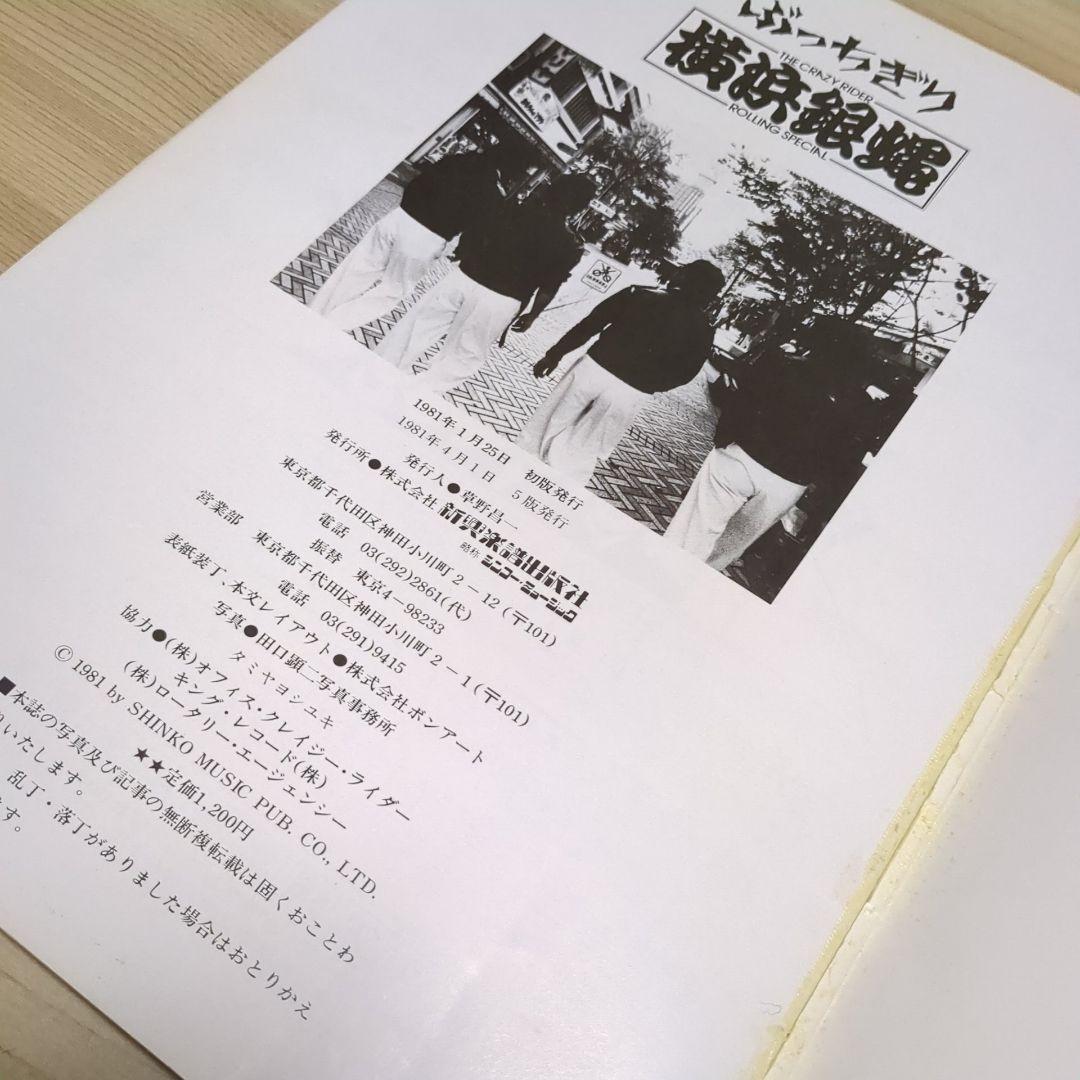 ぶっちぎり
THE CRAZY RIDER
横浜銀蝿
ROLLING SPECIAL
1981年1月25日 初版発行
1981年4月1日 5版発行
発行人●草野昌一
発行所●株式会社 新興楽譜出版社
略称 シンコー・ミュージック
東京都千代田区神田小川町2-12(〒101)
電話 03(292)2861(代)
振替 東京4-98233
営業部 東京都千代田区神田小川町2-1(〒101)
電話 03(291)9415
表紙装丁、本文レイアウト●株式会社ボンアート
写真●田口顕二写真事務所
タミヤヨシユキ
協力●(株)オフィス・クレイジー・ライダー
キング・レコード(株)
(株)ロータリー・エージェンシー
© 1981 by SHINKO MUSIC PUB. CO., LTD.
★★定価1,200円
■本誌の写真及び記事の無断複転載は固くおことわ
りいたします。
乱丁・落丁がありました場合はおとりかえ
ます。